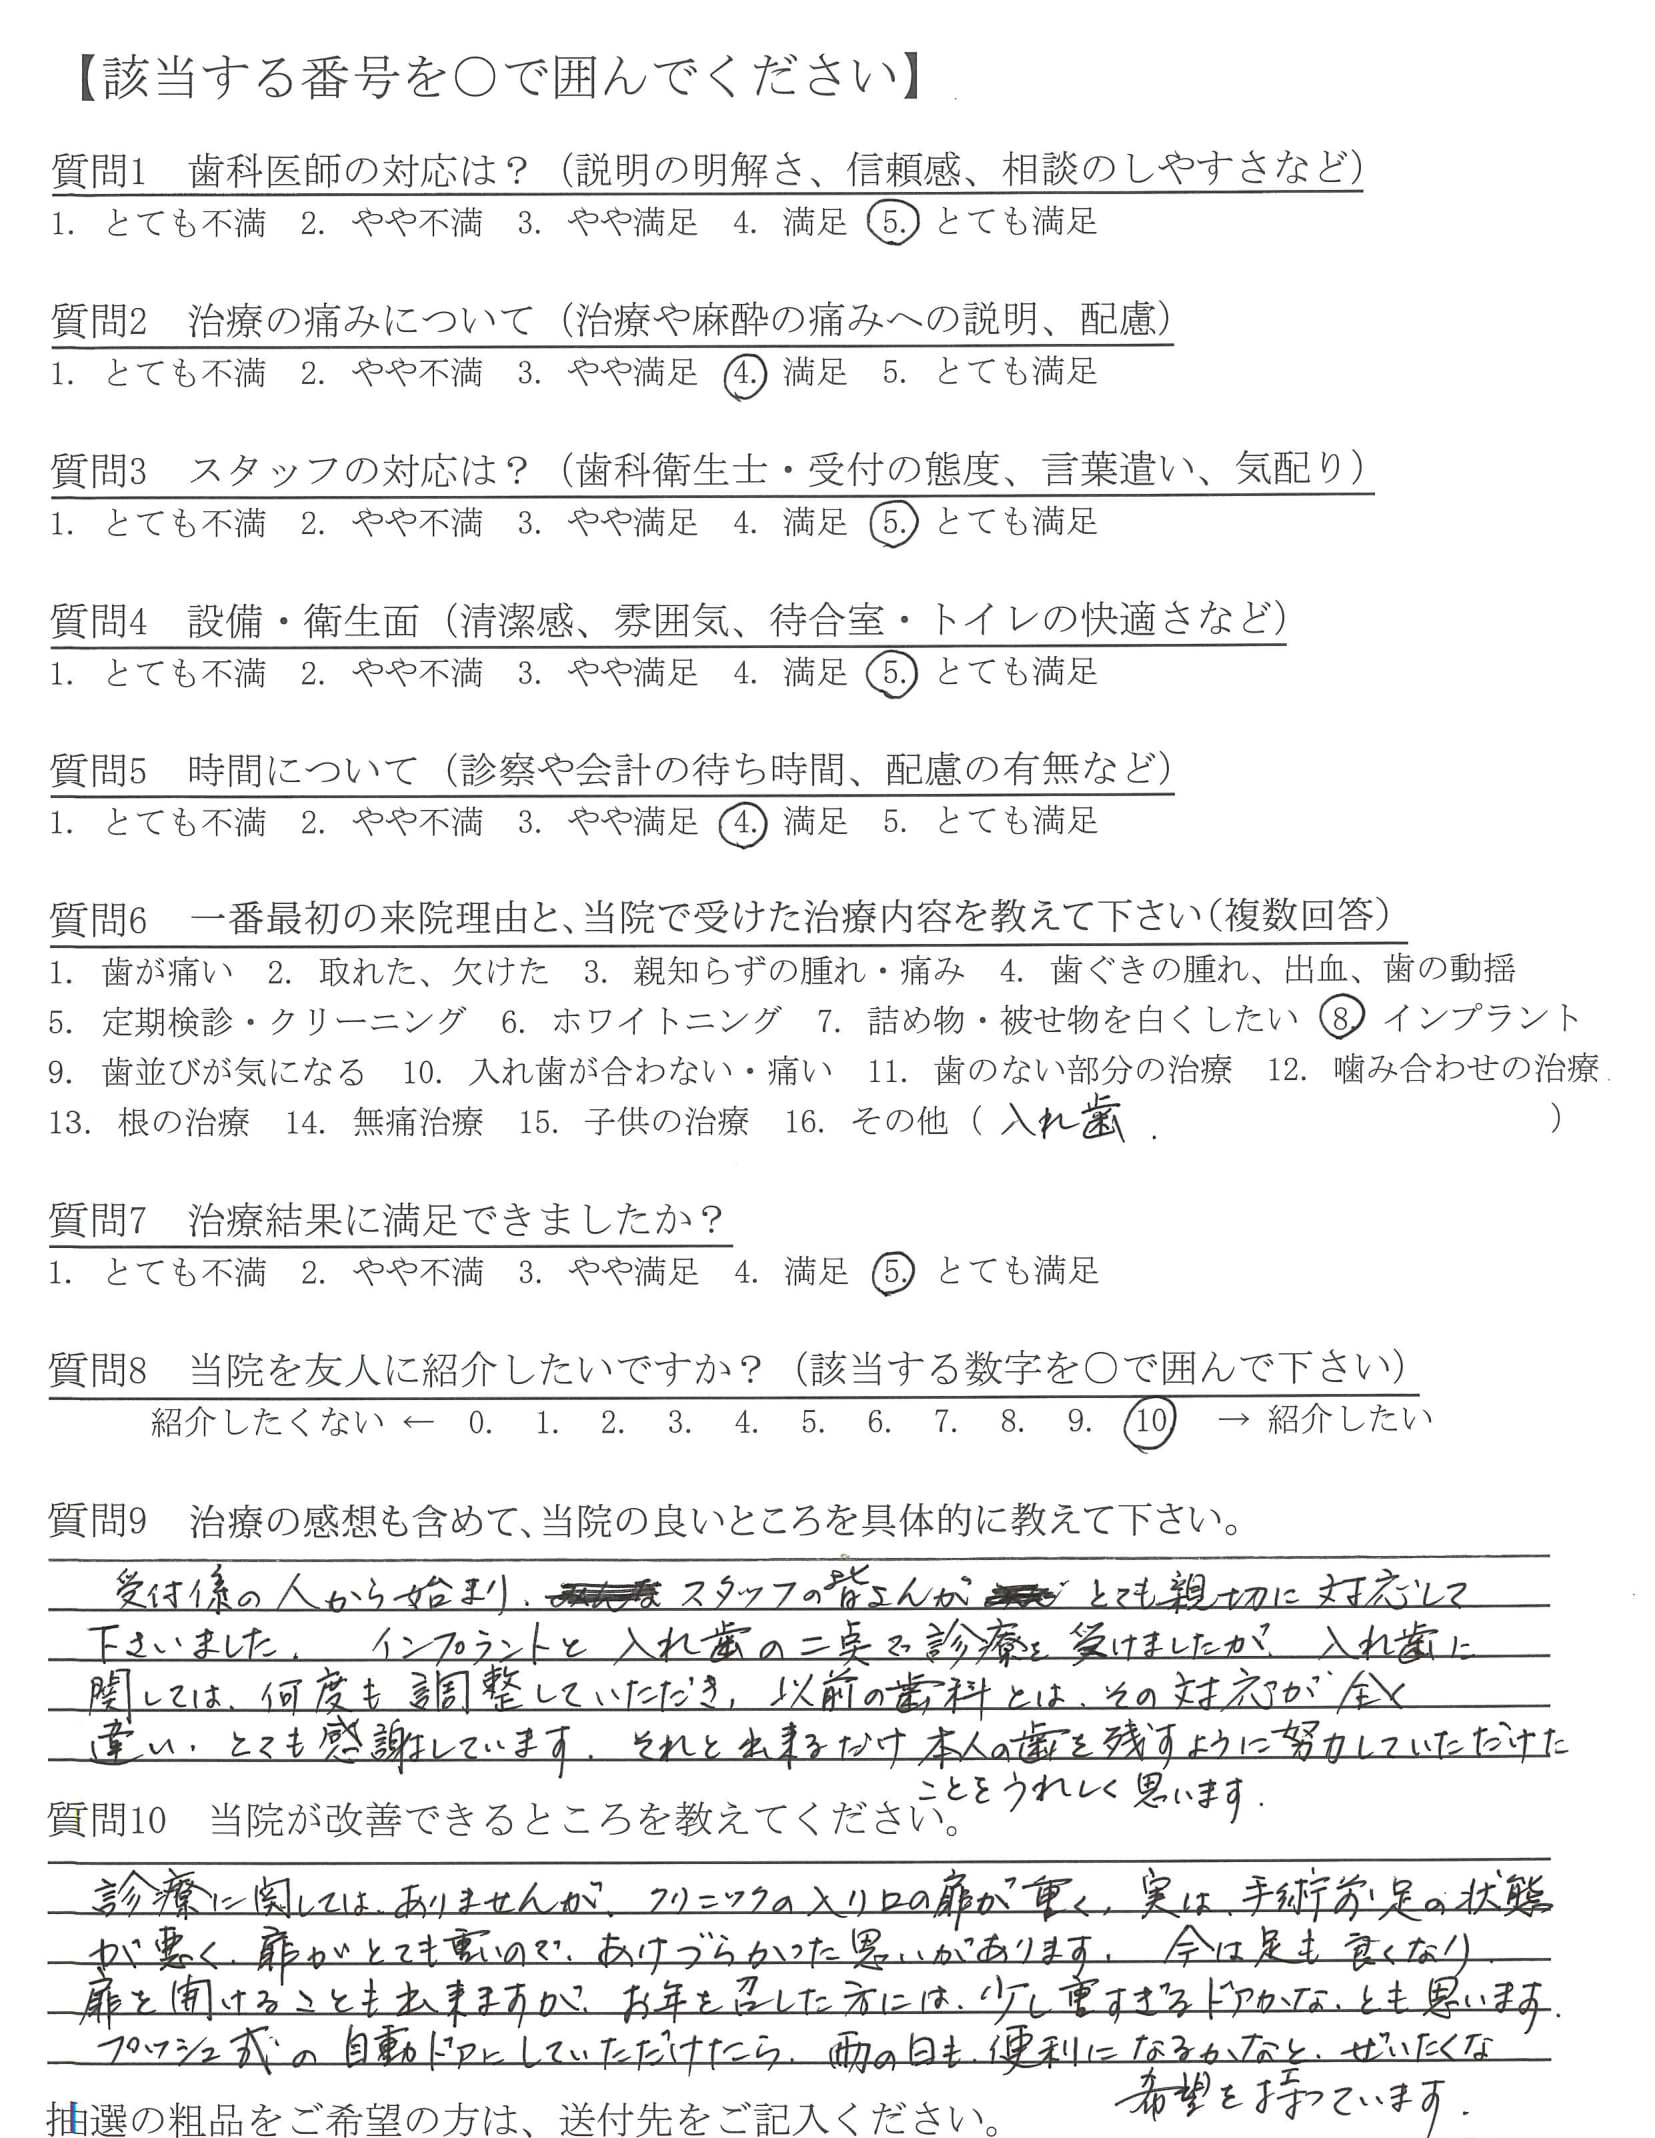 【該当する番号を○で囲んでください】
質問1　歯科医師の対応は？（説明の明解さ、信頼感、相談のしやすさなど）
1. とても不満　2. やや不満　3. やや満足　4. 満足　5. とても満足
質問2　治療の痛みについて（治療や麻酔の痛みへの説明、配慮）
1. とても不満　2. やや不満　3. やや満足　4. 満足　5. とても満足
質問3　スタッフの対応は？（歯科衛生士・受付の態度、言葉遣い、気配り）
1. とても不満　2. やや不満　3. やや満足　4. 満足　5. とても満足
質問4　設備・衛生面（清潔感、雰囲気、待合室・トイレの快適さなど）
1. とても不満　2. やや不満　3. やや満足　4. 満足　5. とても満足
質問5　時間について（診察や会計の待ち時間、配慮の有無など）
1. とても不満　2. やや不満　3. やや満足　4. 満足　5. とても満足
質問6　一番最初の来院理由と、当院で受けた治療内容を教えて下さい（複数回答）
1. 歯が痛い　2. 取れた、欠けた　3. 親知らずの腫れ・痛み　4. 歯ぐきの腫れ、出血、歯の動揺
5. 定期検診・クリーニング　6. ホワイトニング　7. 詰め物・被せ物を白くしたい　8. インプラント
9. 歯並びが気になる　10. 入れ歯が合わない・痛い　11. 歯のない部分の治療　12. 噛み合わせの治療
13. 根の治療　14. 無痛治療　15. 子供の治療　16. その他（ 入れ歯. ）
質問7　治療結果に満足できましたか？
1. とても不満　2. やや不満　3. やや満足　4. 満足　5. とても満足
質問8　当院を友人に紹介したいですか？（該当する数字を○で囲んで下さい）
紹介したくない ← 0. 1. 2. 3. 4. 5. 6. 7. 8. 9. 10 → 紹介したい
質問9　治療の感想も含めて、当院の良いところを具体的に教えて下さい。
受付係の人から始まり、スタッフの皆さんが とても親切に対応して
下さいました. インプラントと入れ歯の二点で診療を受けましたが、入れ歯に
関しては、何度も調整していただき, 以前の歯科とは、その対応が全く
違い、とても感謝しています. それと出来るだけ本人の歯を残すように努力していただけた
ことをうれしく思います.
質問10　当院が改善できるところを教えてください。
診療に関しては、ありませんが、クリニックの入り口の扉が重く, 実は、手術前、足の状態
が悪く、扉がとても重いので、あけづらかった思いがあります. 今は足も良くなり、
扉を開けることも出来ますが、お年を召した方には、少し重すぎるドアかな、とも思います.
プッシュ式の自動ドアにしていただけたら、雨の日も、便利になるかなと、ぜいたくな
希望を持っています.
抽選の粗品をご希望の方は、送付先をご記入ください。